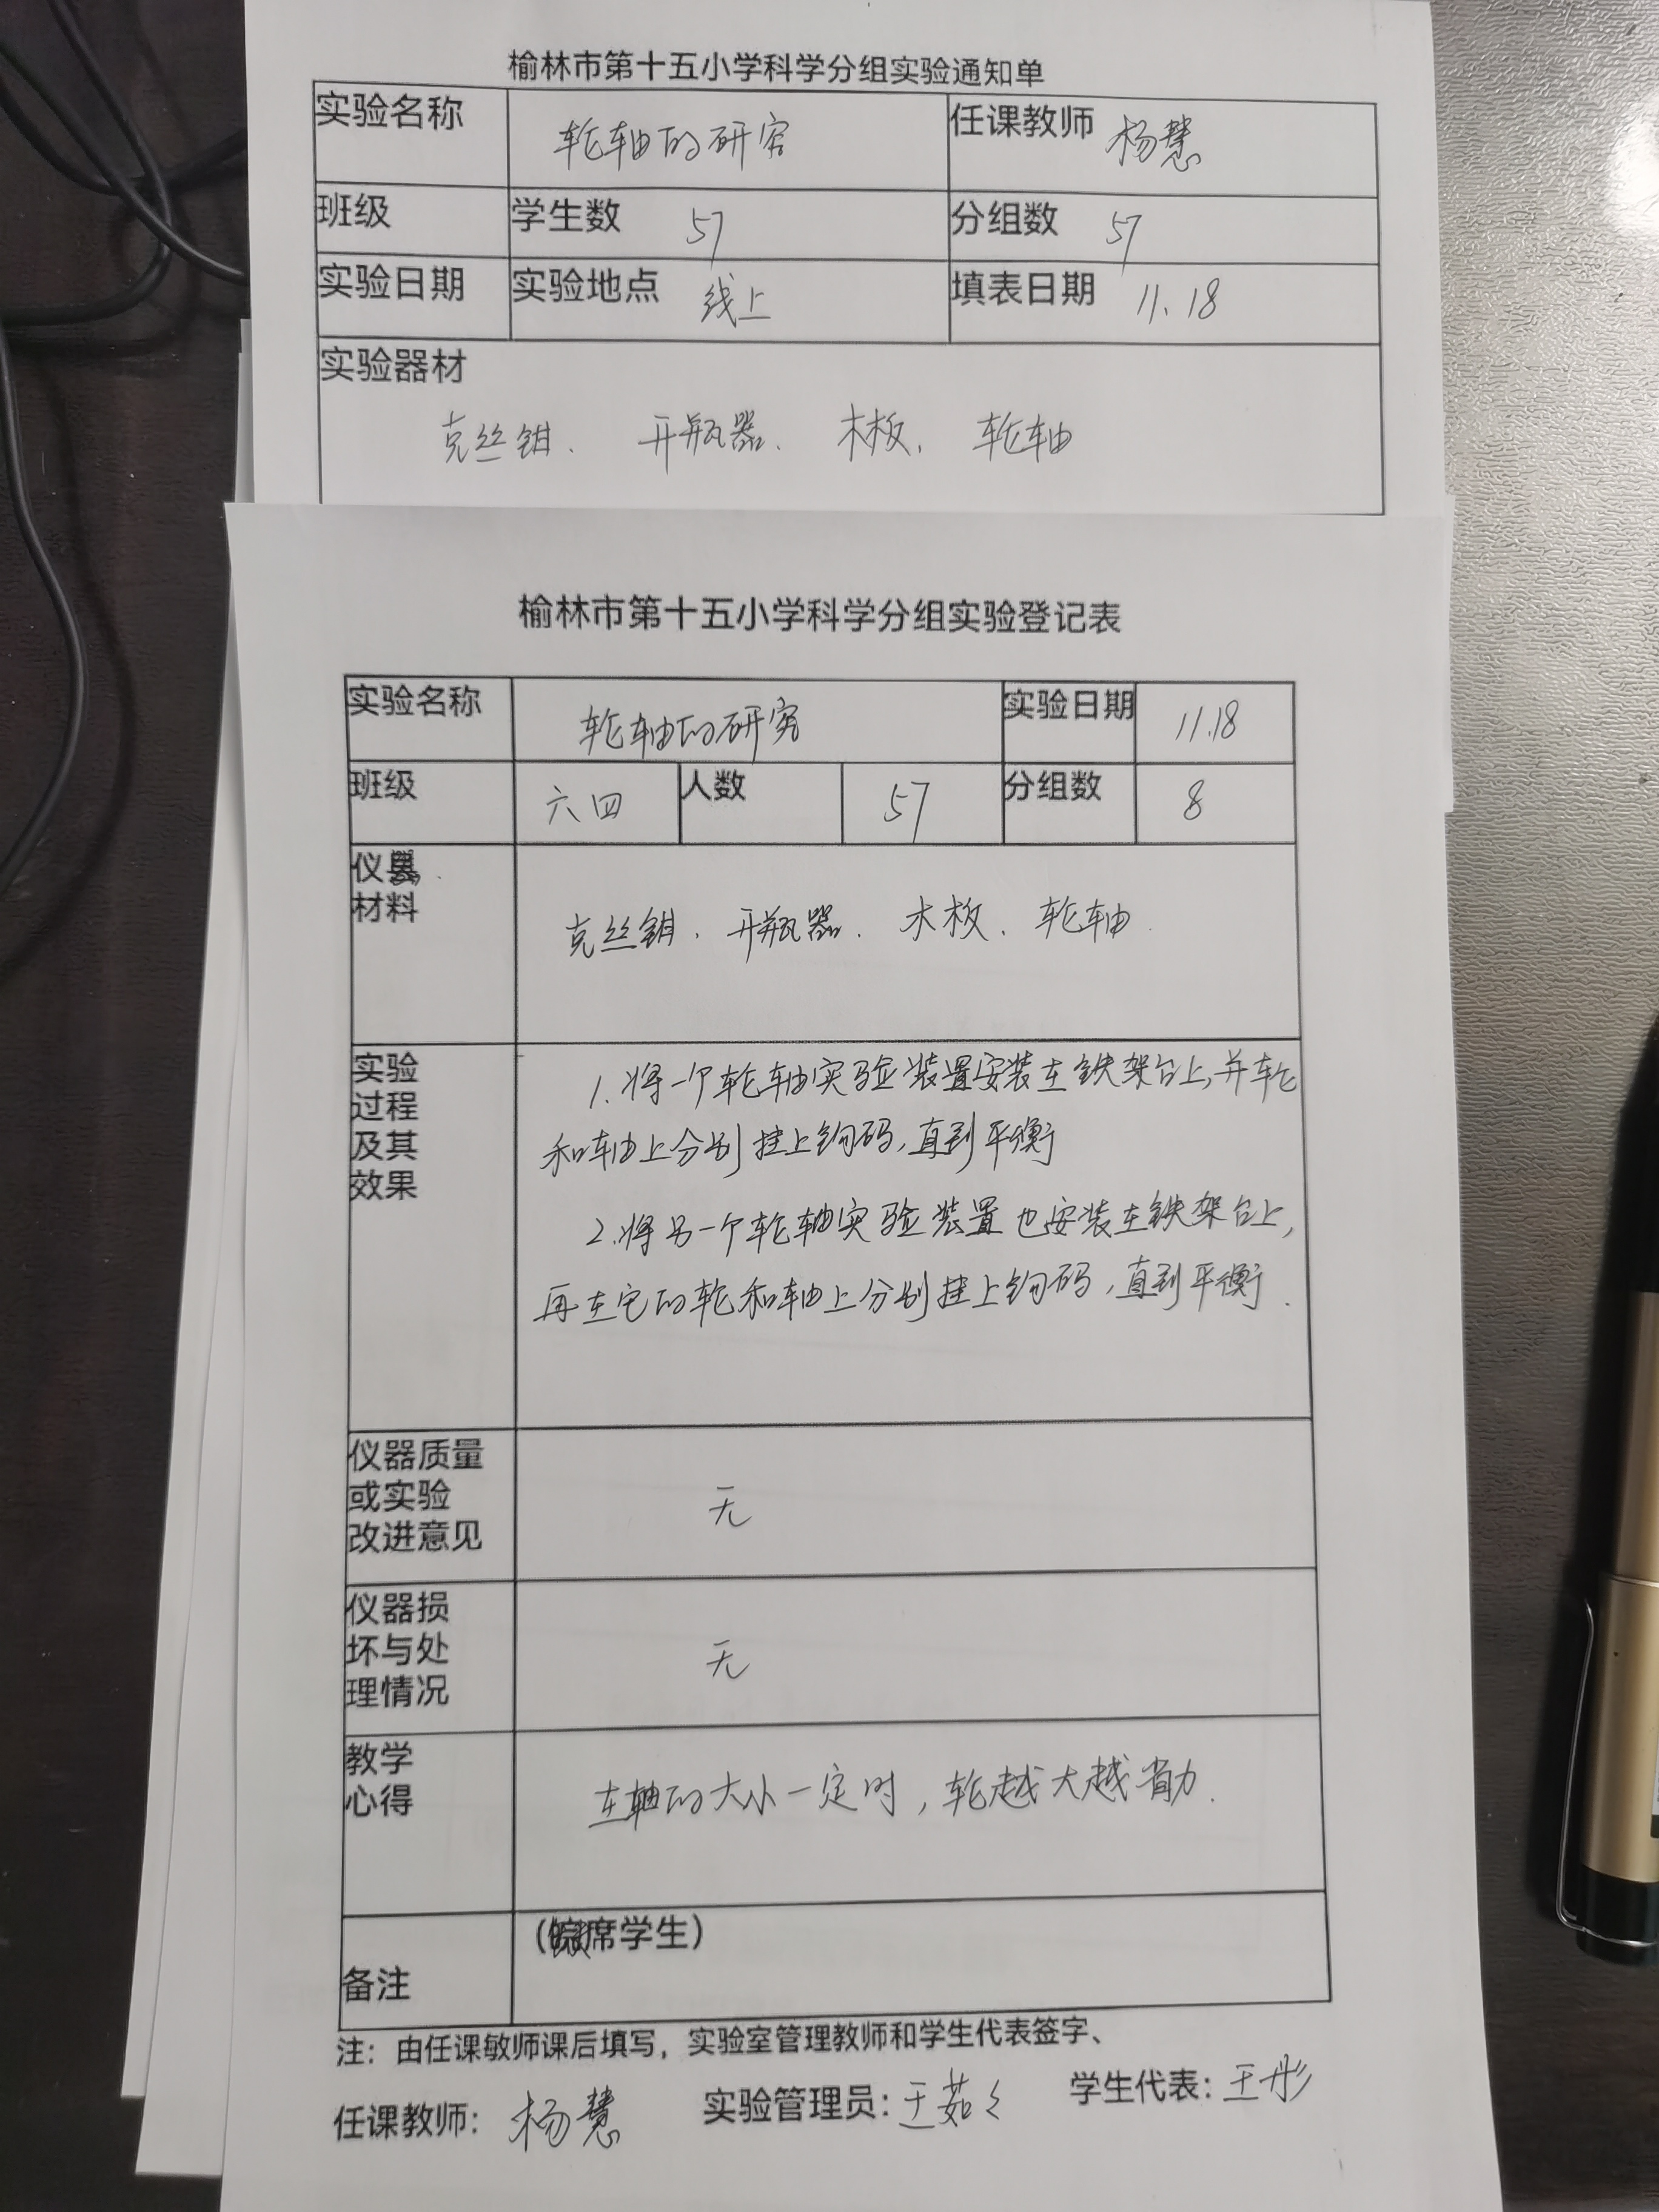 榆林市第十五小学科学分组实验通知单
实验名称 轮轴的研究 任课教师 杨慧
班级 学生数 57 分组数 57
实验日期 实验地点 线上 填表日期 11.18
实验器材
克丝钳、开瓶器、木板、轮轴
榆林市第十五小学科学分组实验登记表
实验名称 轮轴的研究 实验日期 11.18
班级 六四 人数 57 分组数 8
仪器
材料
克丝钳、开瓶器、木板、轮轴
实验
过程
及其
效果
1.将一个轮轴实验装置安装在铁架台上,并轮
和轴上分别挂上钩码,直到平衡
2.将另一个轮轴实验装置也安装在铁架台上,
再在它的轮和轴上分别挂上钩码,直到平衡.
仪器质量
或实验
改进意见
无
仪器损
坏与处
理情况
无
教学
心得
在轴的大小一定时,轮越大越省力.
备注
席学生)
注:由任课敏师课后填写,实验室管理教师和学生代表签字、
任课教师: 杨慧 实验管理员: 王茹々 学生代表: 王彤